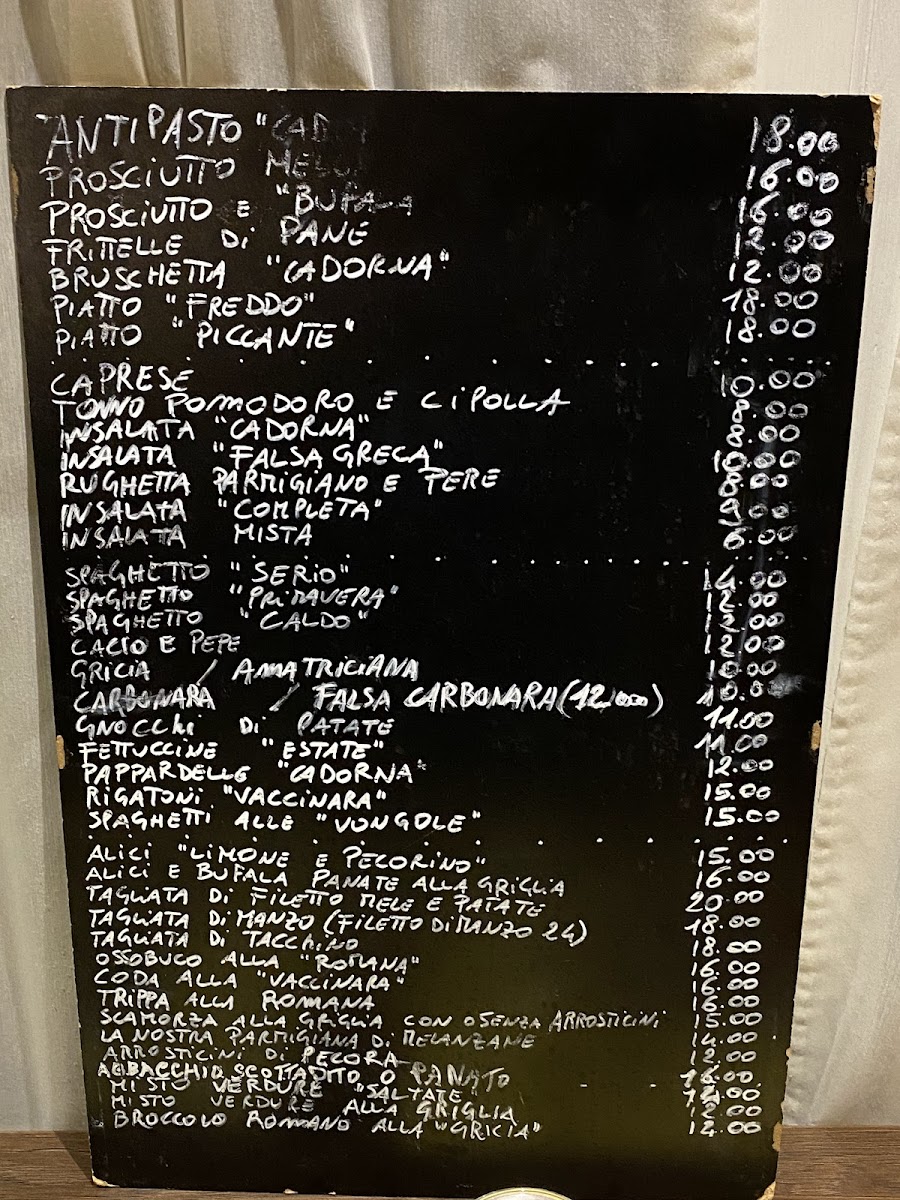 ANTIPASTO 18.00
PROSCIUTTO 16.00
PROSCIUTTO E "BUFALA 16.00
FRITTELLE Di PANE 12.00
BRUSCHETTA "CADORNA" 12.00
PIATTO "FREDDO" 18.00
PIATTO "PICCANTE" 18.00
CAPRESE 10.00
TONNO POMODORO E CiPOLLA 8.00
INSALATA "CADORNA" 8.00
INSALATA "FALSA GRECA" 10.00
RUGHETTA PARMIGIANO E PERE 8.00
INSALATA "COMPLETA" 9.00
INSALATA MISTA 6.00
SPAGHETTO "SERIO" 14.00
SPAGHETTO "PRIMAVERA" 12.00
SPAGHETTO "CALDO" 12.00
CACIO E PEPE 12.00
GRICIA / AMATRICIANA 10.00
CARBONARA / FALSA CARBONARA (12.00) 10.00
GNOCCHi Di PATATE 11.00
FETTUCCINE "ESTATE" 11.00
PAPPARDELLE "CADORNA" 12.00
RIGATONI "VACCINARA" 15.00
SPAGHETTI ALLE "VONGOLE" 15.00
ALICI "LIMONE E PECORINO" 15.00
ALICI E BUFALA PANATE ALLA GRIGLIA 16.00
TAGLIATA Di FILETTO MELE E PATATE 20.00
TAGLIATA Di MANZO (FILETTO Di MANZO 24) 18.00
TAGLIATA Di TACCHINO 18.00
OSSOBUCO ALLA "ROMANA" 16.00
CODA ALLA "VACCINARA" 16.00
TRIPPA ALLA ROMANA 16.00
SCAMORZA ALLA GRIGLIA CON O SENZA ARROSTICINI 15.00
LA NOSTRA PARMIGIANA Di MELANZANE 14.00
ARROSTICINI Di PECORA 12.00
ABBACCHIO SCOTTADITO O PANATO 16.00
MISTO VERDURE "SALTATE" 12.00
MISTO VERDURE ALLA GRIGLIA 12.00
BROCCOLO ROMANO ALLA "GRICIA" 12.00